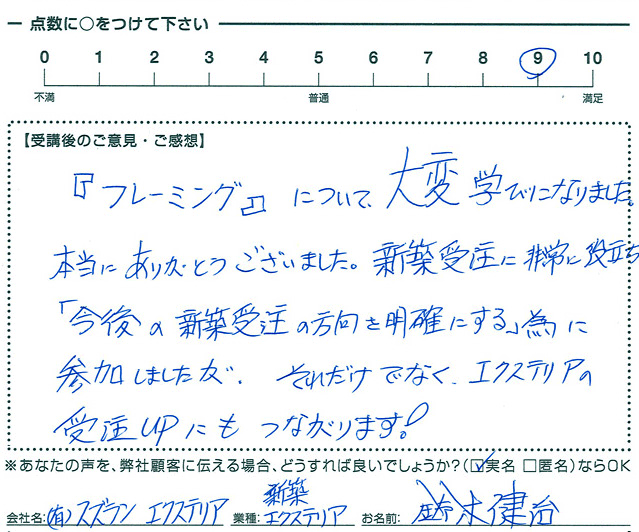 点数に○をつけて下さい
0 1 2 3 4 5 6 7 8 9 10
不満 普通 満足
【受講後のご意見・ご感想】
『フレーミング』について、大変学びになりました。
本当にありがとうございました。新築受注に非常に役立ち
「今後の新築受注の方向を明確にする」為に
参加しましたが、それだけでなく、エクステリアの
受注UPにもつながります!
※あなたの声を、弊社顧客に伝える場合、どうすれば良いでしょうか?(☑実名 □匿名)ならOK
会社名:(有)スズラン エクステリア 業種:新築 エクステリア お名前:鈴木健治